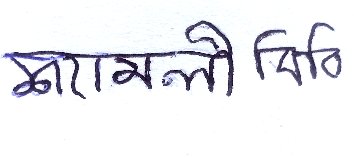 শ্যামলী বিবি